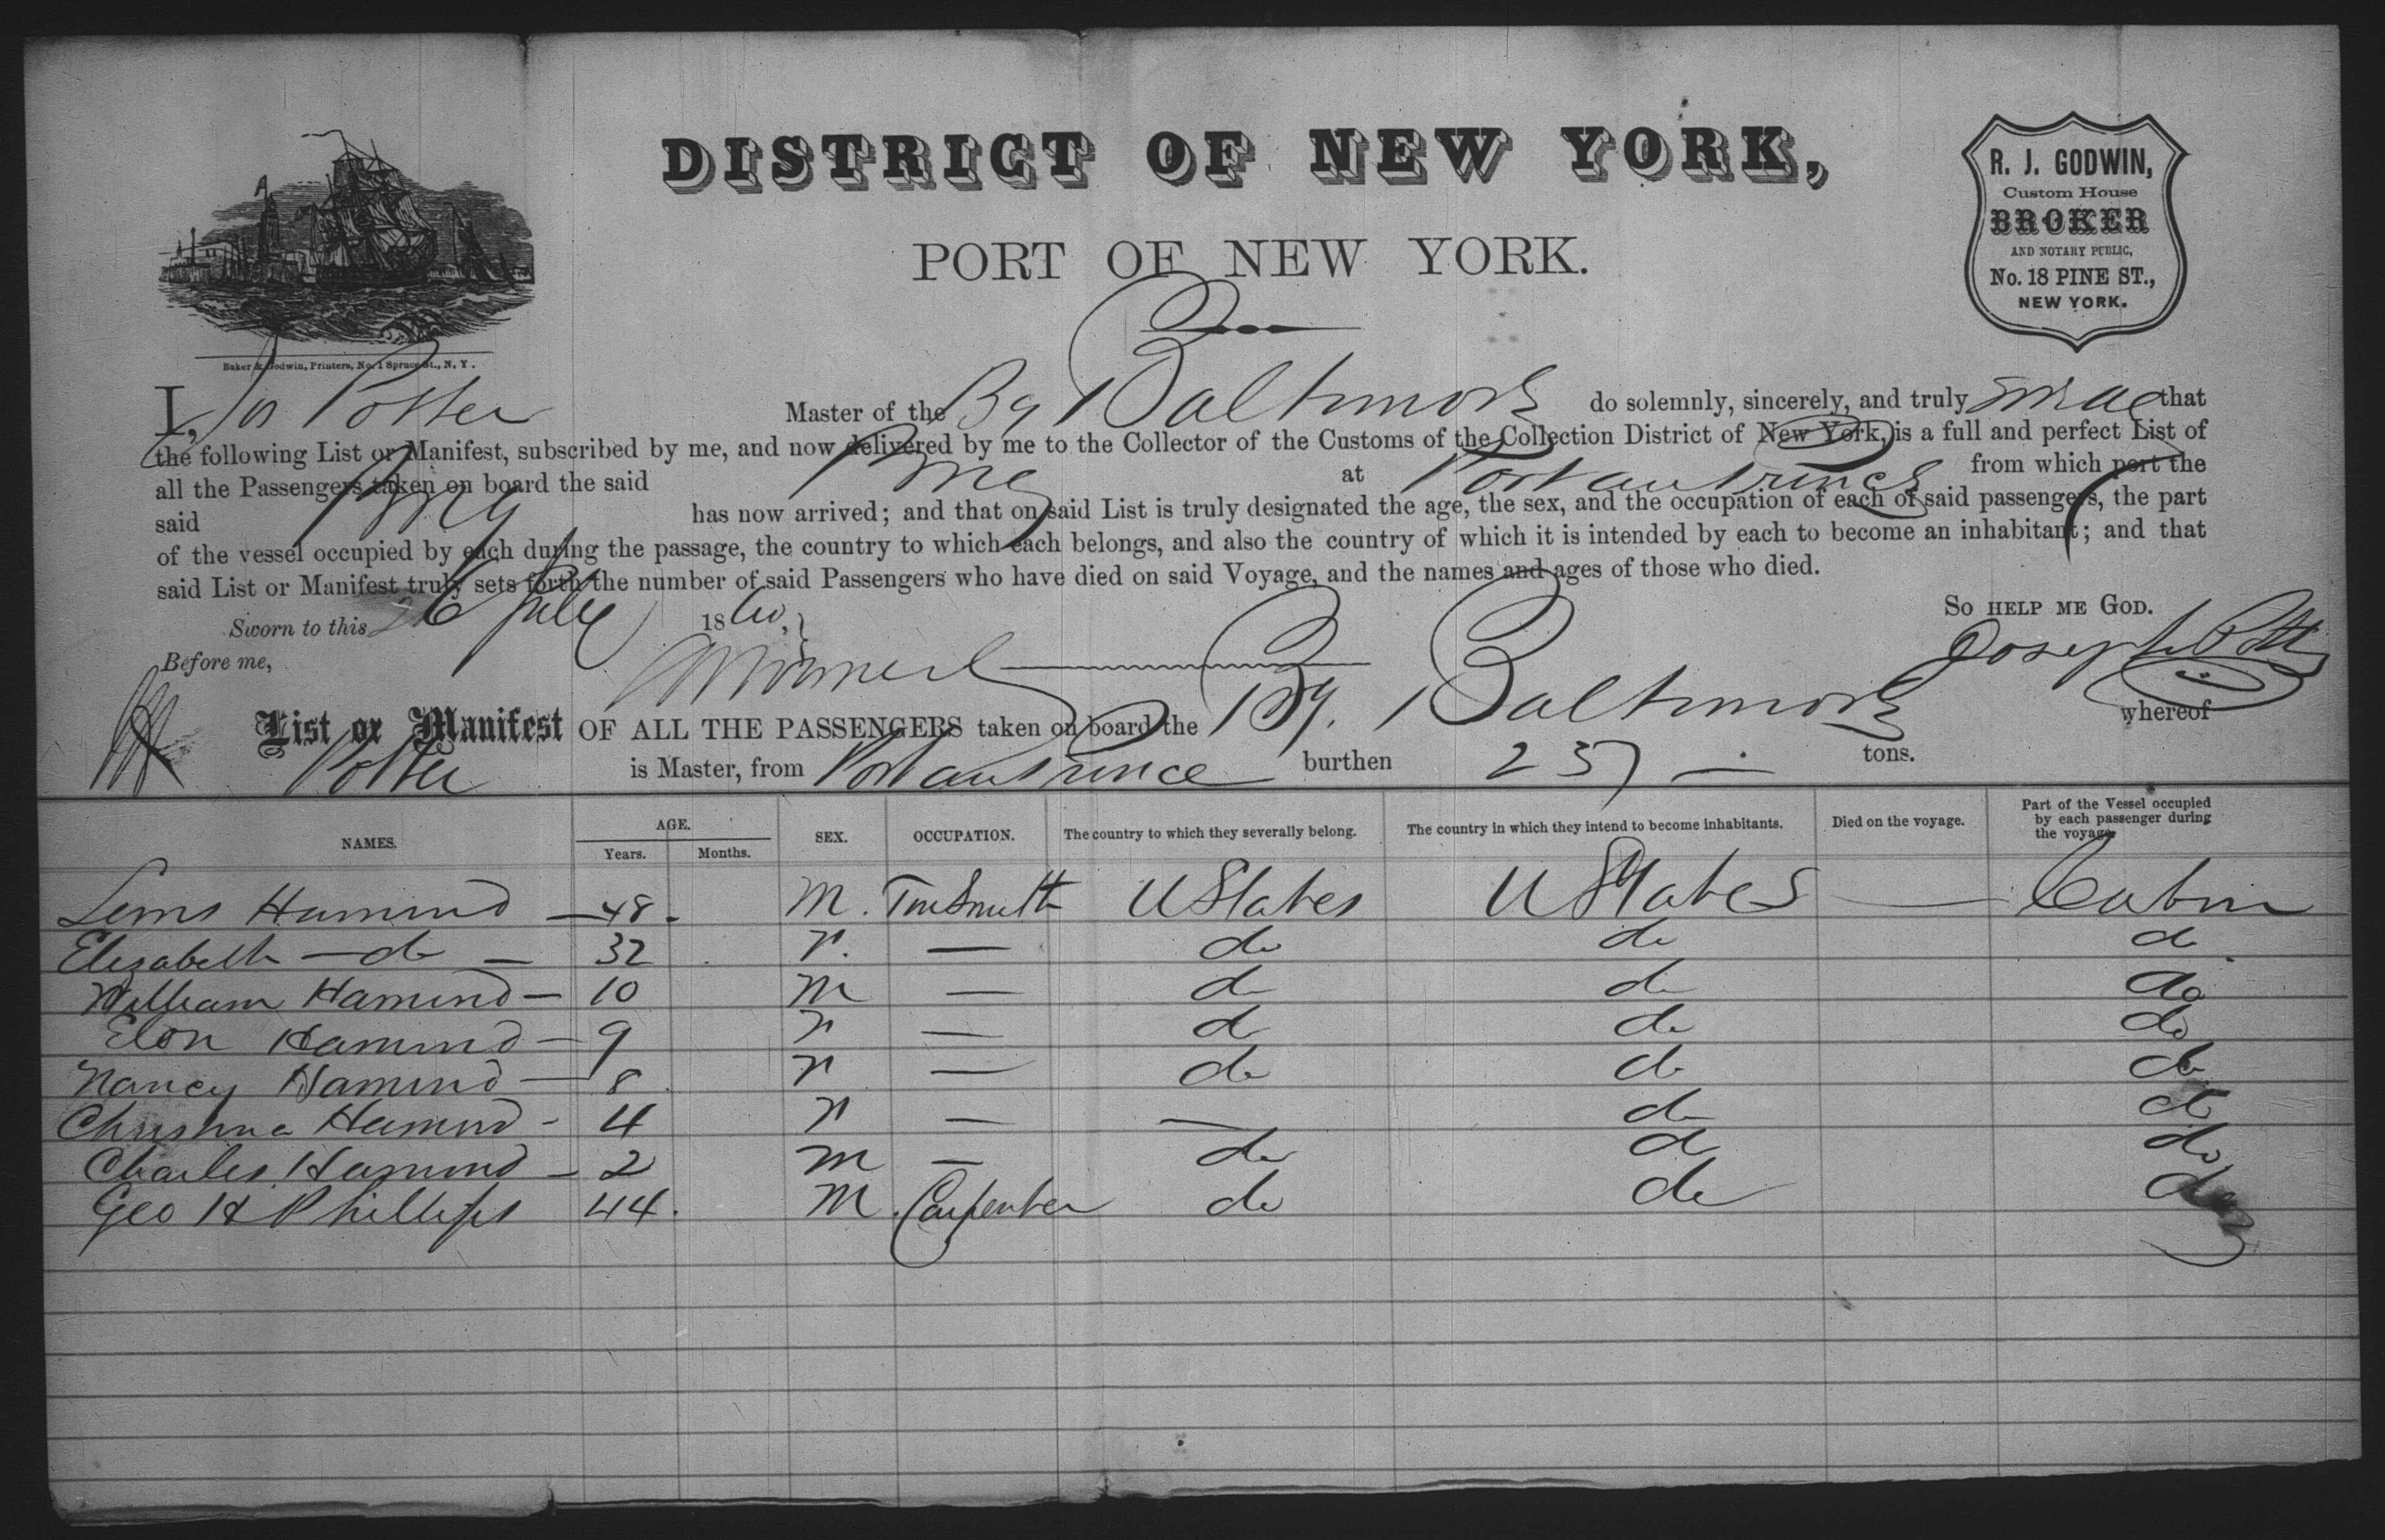 DISTRICT OF NEW YORK,
PORT OF NEW YORK.
R. J. GODWIN,
Custom House
BROKER
AND NOTARY PUBLIC,
No. 18 PINE ST.,
NEW YORK.
Baker & Godwin, Printers, No. 1 Spruce St., N. Y.
I, Jos Potter Master of the Bg Baltimore do solemnly, sincerely, and truly swear that
the following List or Manifest, subscribed by me, and now delivered by me to the Collector of the Customs of the Collection District of New York, is a full and perfect List of
all the Passengers taken on board the said Brig at Port au Prince from which port the
said Brig has now arrived; and that on said List is truly designated the age, the sex, and the occupation of each of said passengers, the part
of the vessel occupied by each during the passage, the country to which each belongs, and also the country of which it is intended by each to become an inhabitant; and that
said List or Manifest truly sets forth the number of said Passengers who have died on said Voyage, and the names and ages of those who died.
So help me God.
Sworn to this 26 July 1860,
Joseph Potter
Before me,
List or Manifest OF ALL THE PASSENGERS taken on board the Bg. Baltimore whereof
Potter is Master, from Port au Prince burthen 237 tons.
NAMES. AGE. Years. Months. SEX. OCCUPATION. The country to which they severally belong. The country in which they intend to become inhabitants. Died on the voyage. Part of the Vessel occupied by each passenger during the voyage.
Hamind — 48 . M. TinSmith U States U States — Cabin
Elizabeth — do — 32 F. — do do do
William Hamind — 10 M — do do do
Elon Hamind — 9 F — do do do
Nancy Hamind — 8 F — do do do
Christina Hamind - 4 F — — do do
Charles Hamind — 2 M — do do do
Geo H Phillips 44. M. Carpenter do do do